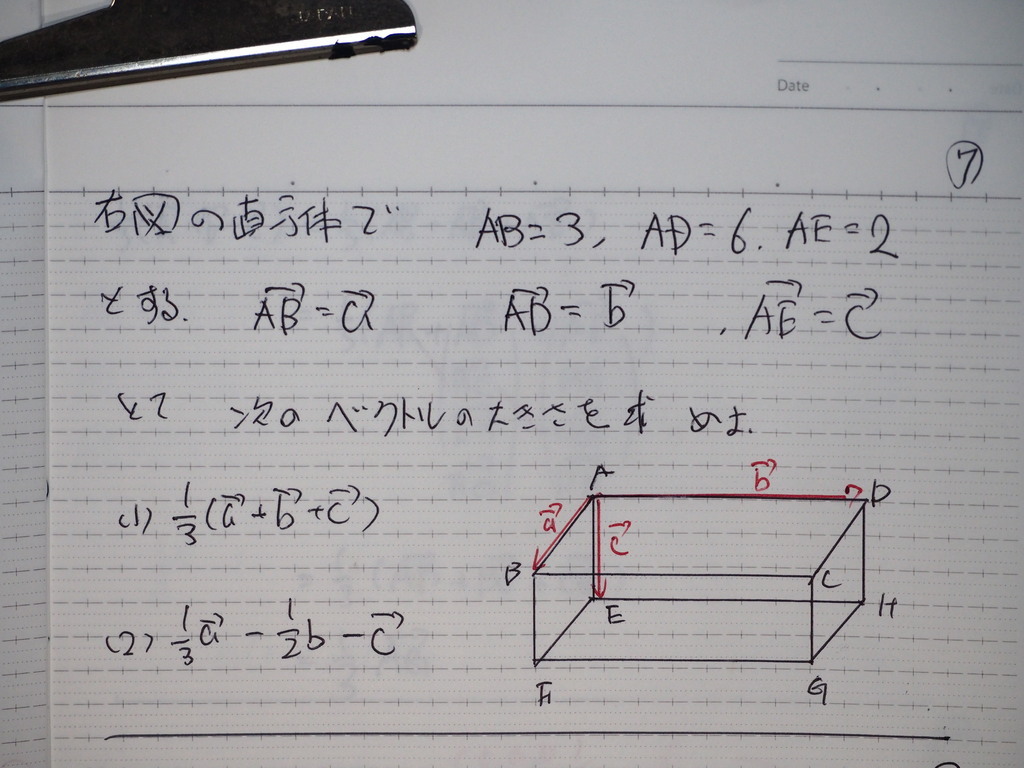 Date
⑦
右図の直方体で AB=3, AD=6. AE=2
とする. \overrightarrow{AB}=\vec{a} \overrightarrow{AD}=\vec{b} , \overrightarrow{AE}=\vec{c}
として 次のベクトルの大きさを求めよ.
(1) \frac{1}{3}(\vec{a}+\vec{b}+\vec{c})
(2) \frac{1}{3}\vec{a} - \frac{1}{2}b - \vec{c}
A \vec{b} D
\vec{a} \vec{c}
B C
E H
F G